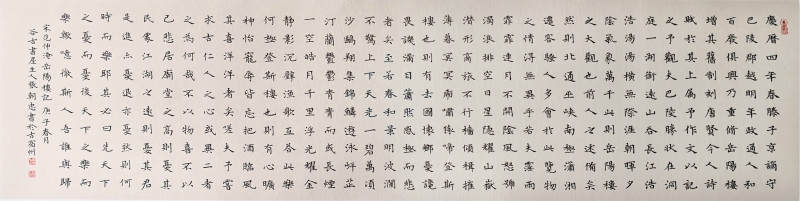 慶曆四年春滕子京謫守
巴陵郡越明年政通人和
百廢俱興乃重修岳陽樓
增其舊制刻唐賢今人詩
賦於其上屬予作文以記
之予觀夫巴陵勝狀在洞
庭一湖銜遠山吞長江浩
浩湯湯橫無際涯朝暉夕
陰氣象萬千此則岳陽樓
之大觀也前人之述備矣
然則北通巫峽南極瀟湘
遷客騷人多會於此覽物
之情得無異乎若夫霪雨
霏霏連月不開陰風怒號
濁浪排空日星隱耀山嶽
潛形商旅不行檣傾楫摧
薄暮冥冥虎嘯猿啼登斯
樓也則有去國懷鄉憂讒
畏譏滿目蕭然感極而悲
者矣至若春和景明波瀾
不驚上下天光一碧萬頃
沙鷗翔集錦鱗游泳岸芷
汀蘭鬱鬱青青而或長煙
一空皓月千里浮光耀金
靜影沉璧漁歌互答此樂
何極登斯樓也則有心曠
神怡寵辱皆忘把酒臨風
其喜洋洋者矣嗟夫予嘗
求古仁人之心或異二者
之為何哉不以物喜不以
己悲居廟堂之高則憂其
民處江湖之遠則憂其君
是進亦憂退亦憂然則何
時而樂耶其必曰先天下
之憂而憂後天下之樂而
樂歟噫微斯人吾誰與歸
宋范仲淹岳陽樓記 庚子春月
谷古書屋主人張朝忠書於古宿州